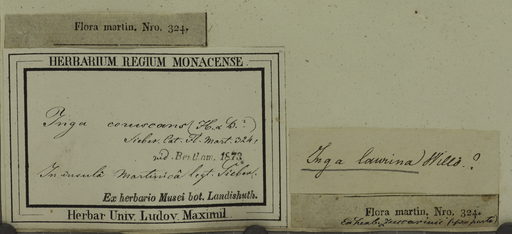 Flora martin. Nro. 324.
HERBARIUM REGIUM MONACENSE
Inga coruscans (H. & B.?)
Sieber. Cat. Fl. Mart. 324,
vid. Benth. 1873
In insula Martinica legt. Sieber.
Ex herbario Musei bot. Landishuth.
Herbar Univ. Ludov. Maximil
Inga laurina Willd.?
Flora martin. Nro. 324.
Ex herb. Zuccarinii (pro parte)